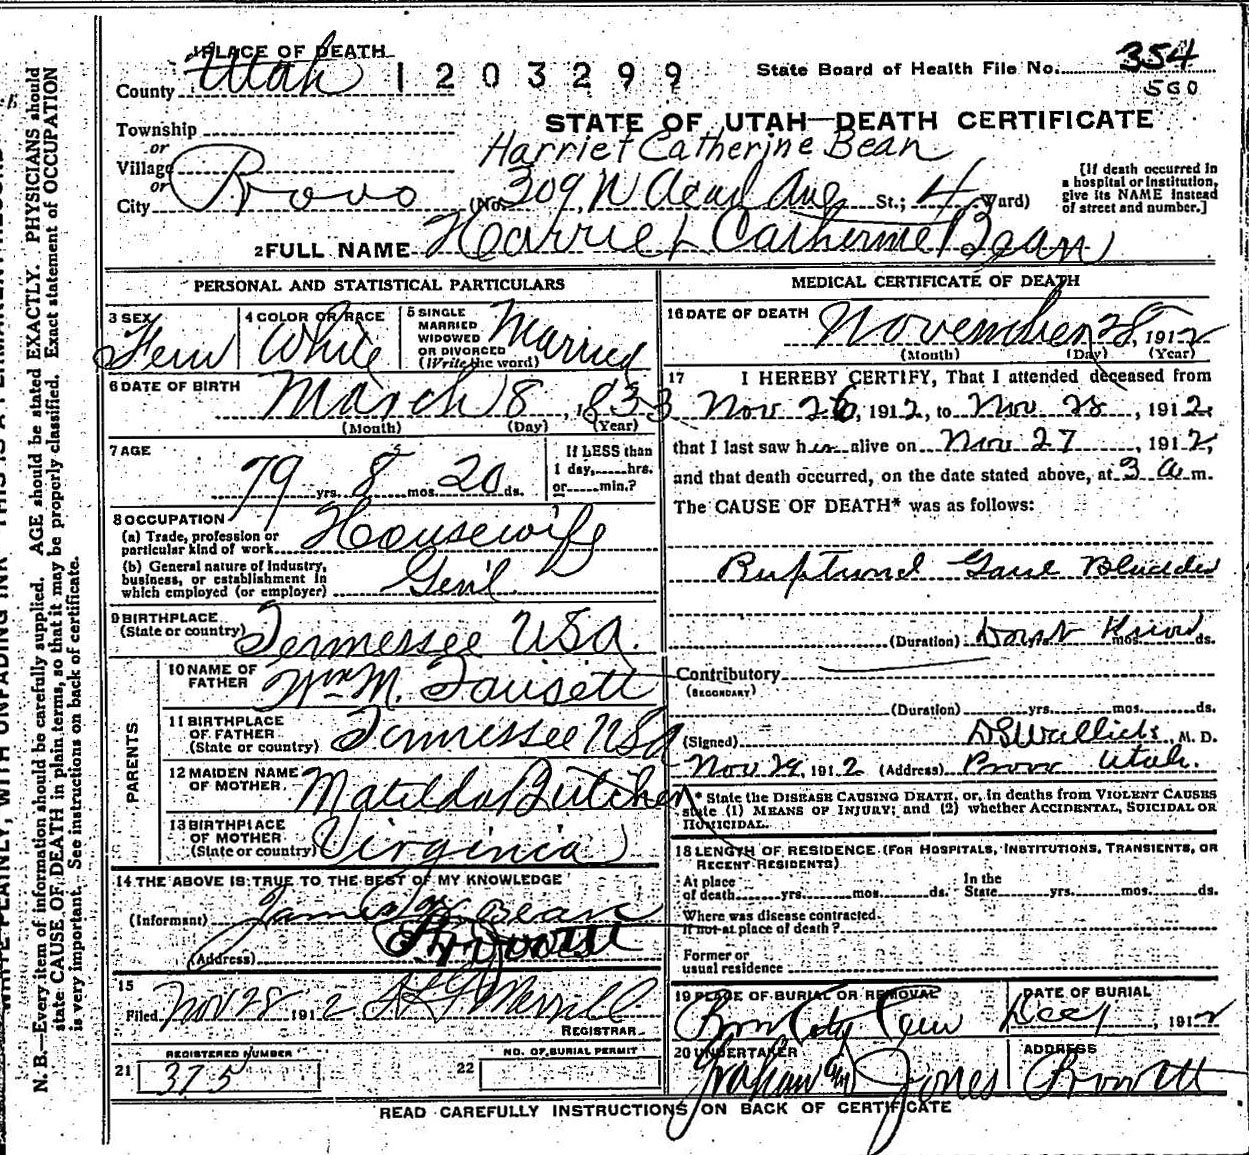 1 PLACE OF DEATH
County Utah
1203299
State Board of Health File No. 354
560
Township
or
Village
or
City Provo
STATE OF UTAH—DEATH CERTIFICATE
Harriet Catherine Bean
(No. 309 N Acad Ave St.; 4 Ward)
[If death occurred in
a hospital or institution,
give its NAME instead
of street and number.]
2 FULL NAME Harriet Catherine Bean
PERSONAL AND STATISTICAL PARTICULARS
3 SEX Fem
4 COLOR OR RACE White
5 SINGLE
MARRIED
WIDOWED
OR DIVORCED
(Write the word) Married
6 DATE OF BIRTH
March 8, 1833
(Month) (Day) (Year)
7 AGE
79 yrs. 8 mos. 20 ds.
If LESS than
1 day, hrs.
or min.?
8 OCCUPATION
(a) Trade, profession or
particular kind of work Housewife
(b) General nature of industry,
business, or establishment in
which employed (or employer) Gen'l
9 BIRTHPLACE
(State or country) Tennessee USA.
PARENTS
10 NAME OF
FATHER Wm M. Fausett
11 BIRTHPLACE
OF FATHER
(State or country) Tennessee USA
12 MAIDEN NAME
OF MOTHER Matilda Butcher
13 BIRTHPLACE
OF MOTHER
(State or country) Virginia
14 THE ABOVE IS TRUE TO THE BEST OF MY KNOWLEDGE
(Informant) James Bean
(Address)
15
Filed Nov 28 1912 Merrill
REGISTRAR
REGISTERED NUMBER
21 375
NO. OF BURIAL PERMIT
22
MEDICAL CERTIFICATE OF DEATH
16 DATE OF DEATH
November 28, 1912
(Month) (Day) (Year)
17 I HEREBY CERTIFY, That I attended deceased from
Nov 26, 1912, to Nov 28, 1912,
that I last saw her alive on Nov 27, 1912,
and that death occurred, on the date stated above, at 3 a m.
The CAUSE OF DEATH* was as follows:
Ruptured Gaul Bladder
(Duration) Don't Know yrs. mos. ds.
Contributory
(SECONDARY)
(Duration) yrs. mos. ds.
(Signed) M. D.
Nov 29, 1912 (Address) Provo Utah.
* State the DISEASE CAUSING DEATH, or, in deaths from VIOLENT CAUSES
state (1) MEANS OF INJURY; and (2) whether ACCIDENTAL, SUICIDAL OR
HOMICIDAL.
18 LENGTH OF RESIDENCE (FOR HOSPITALS, INSTITUTIONS, TRANSIENTS, OR
RECENT RESIDENTS)
At place
of death yrs. mos. ds. In the
State yrs. mos. ds.
Where was disease contracted
if not at place of death?
Former or
usual residence
19 PLACE OF BURIAL OR REMOVAL
Provo City Cem
DATE OF BURIAL
Dec 1, 1912
20 UNDERTAKER
Jones
ADDRESS
READ CAREFULLY INSTRUCTIONS ON BACK OF CERTIFICATE
N. B.—Every item of information should be carefully supplied. AGE should be stated EXACTLY. PHYSICIANS should
state CAUSE OF DEATH in plain terms, so that it may be properly classified. Exact statement of OCCUPATION
is very important. See instructions on back of certificate.